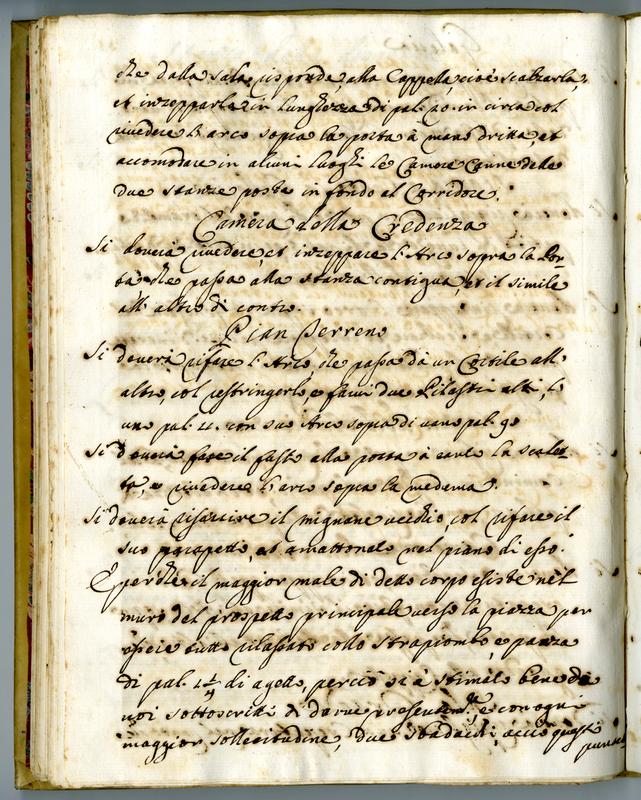 che dalla sala risponde alla Cappella, cioè scalzarla,
et inzepparla in lunghezza di pal. 20. in circa col
rivedere l'arco sopra la porta à mano dritta, et
accomodare in alcuni luoghi le Camore Canne delle
due stanze poste in fondo al Corridore.
Camera della Credenza
Si doverà rivedere, et inzeppare l'Arco sopra la Por-
ta, che passa alla stanza contigua, et il simile
all' altro di contro.
Pian Terreno
Si doverà rifare l'Arco, che passa da un Cortile all'
altro, col restringerlo, e farvi due Pilastri alti, l'
uno pal. 4. con suo Arco sopra di vano pal. 90
Si doverà fare il fusto alla porta à canto la scalet-
ta, e rivedere l'arco sopra la medema.
Si doverà risarcire il mignano vecchio col rifare il
suo parapetto, ed amattonato nel piano di esso.
E perche il maggior male di detto corpo esiste nel
muro del prospetto principale verso la piazza per
essere tutto rilasciato collo strapiombo, e panza
di pal. di agetto, perciò si è stimato bene da
noi sottoscritti di darne presentem.te e con ogni
maggior sollecitudine, due sbadacchi, acciò questi